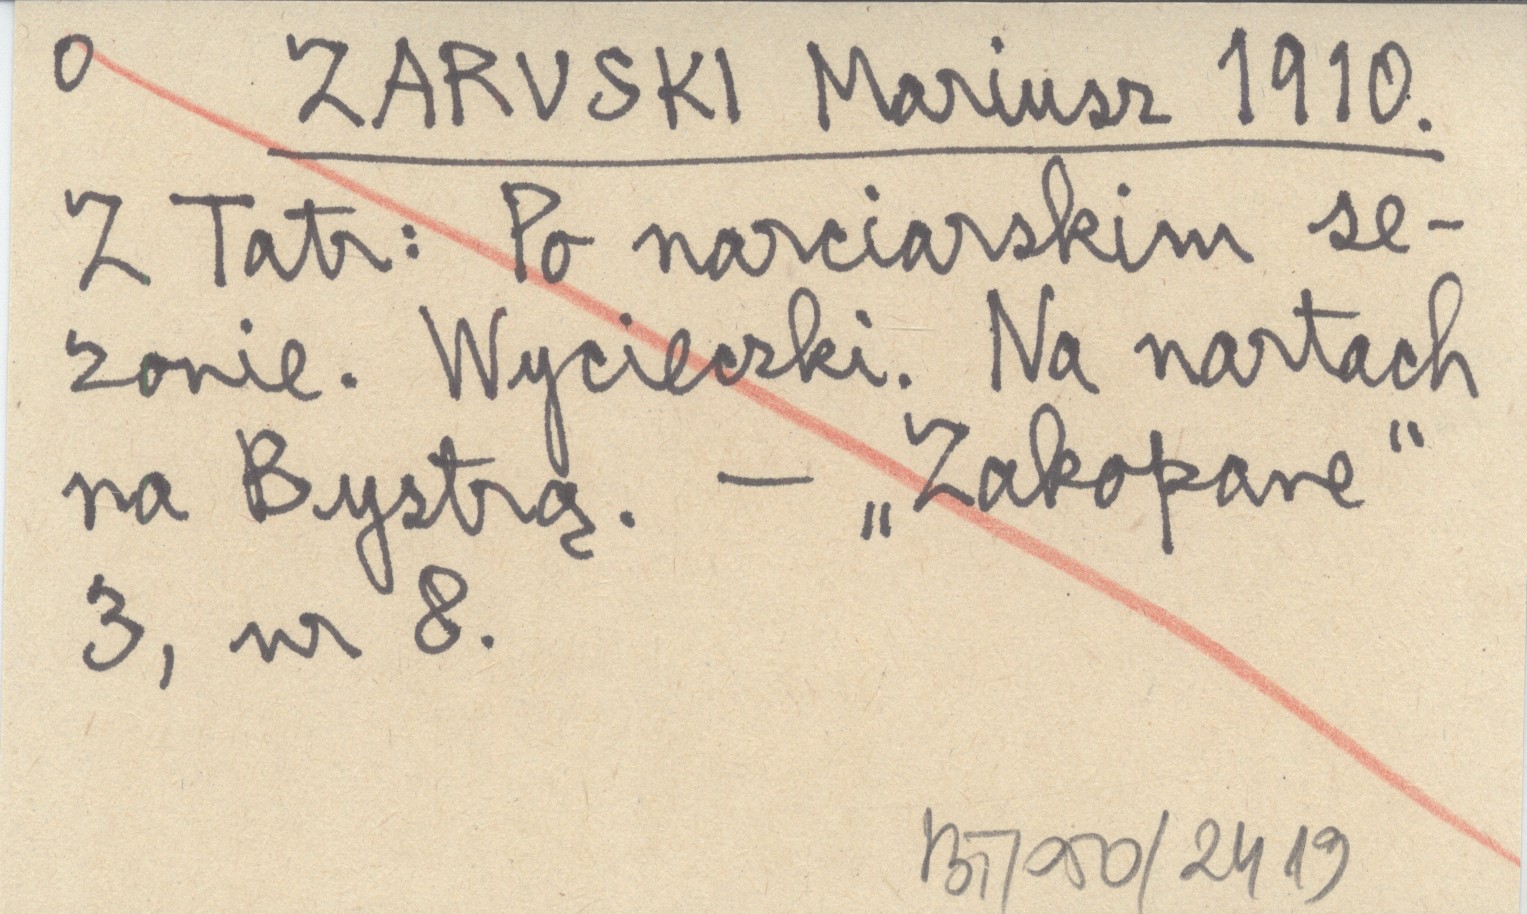 O ZARUSKI Mariusz 1910.
Z Tatr: Po narciarskim se-
zonie. Wycieczki. Na nartach
na Bystrą. — „Zakopane"
3, nr 8.
2419